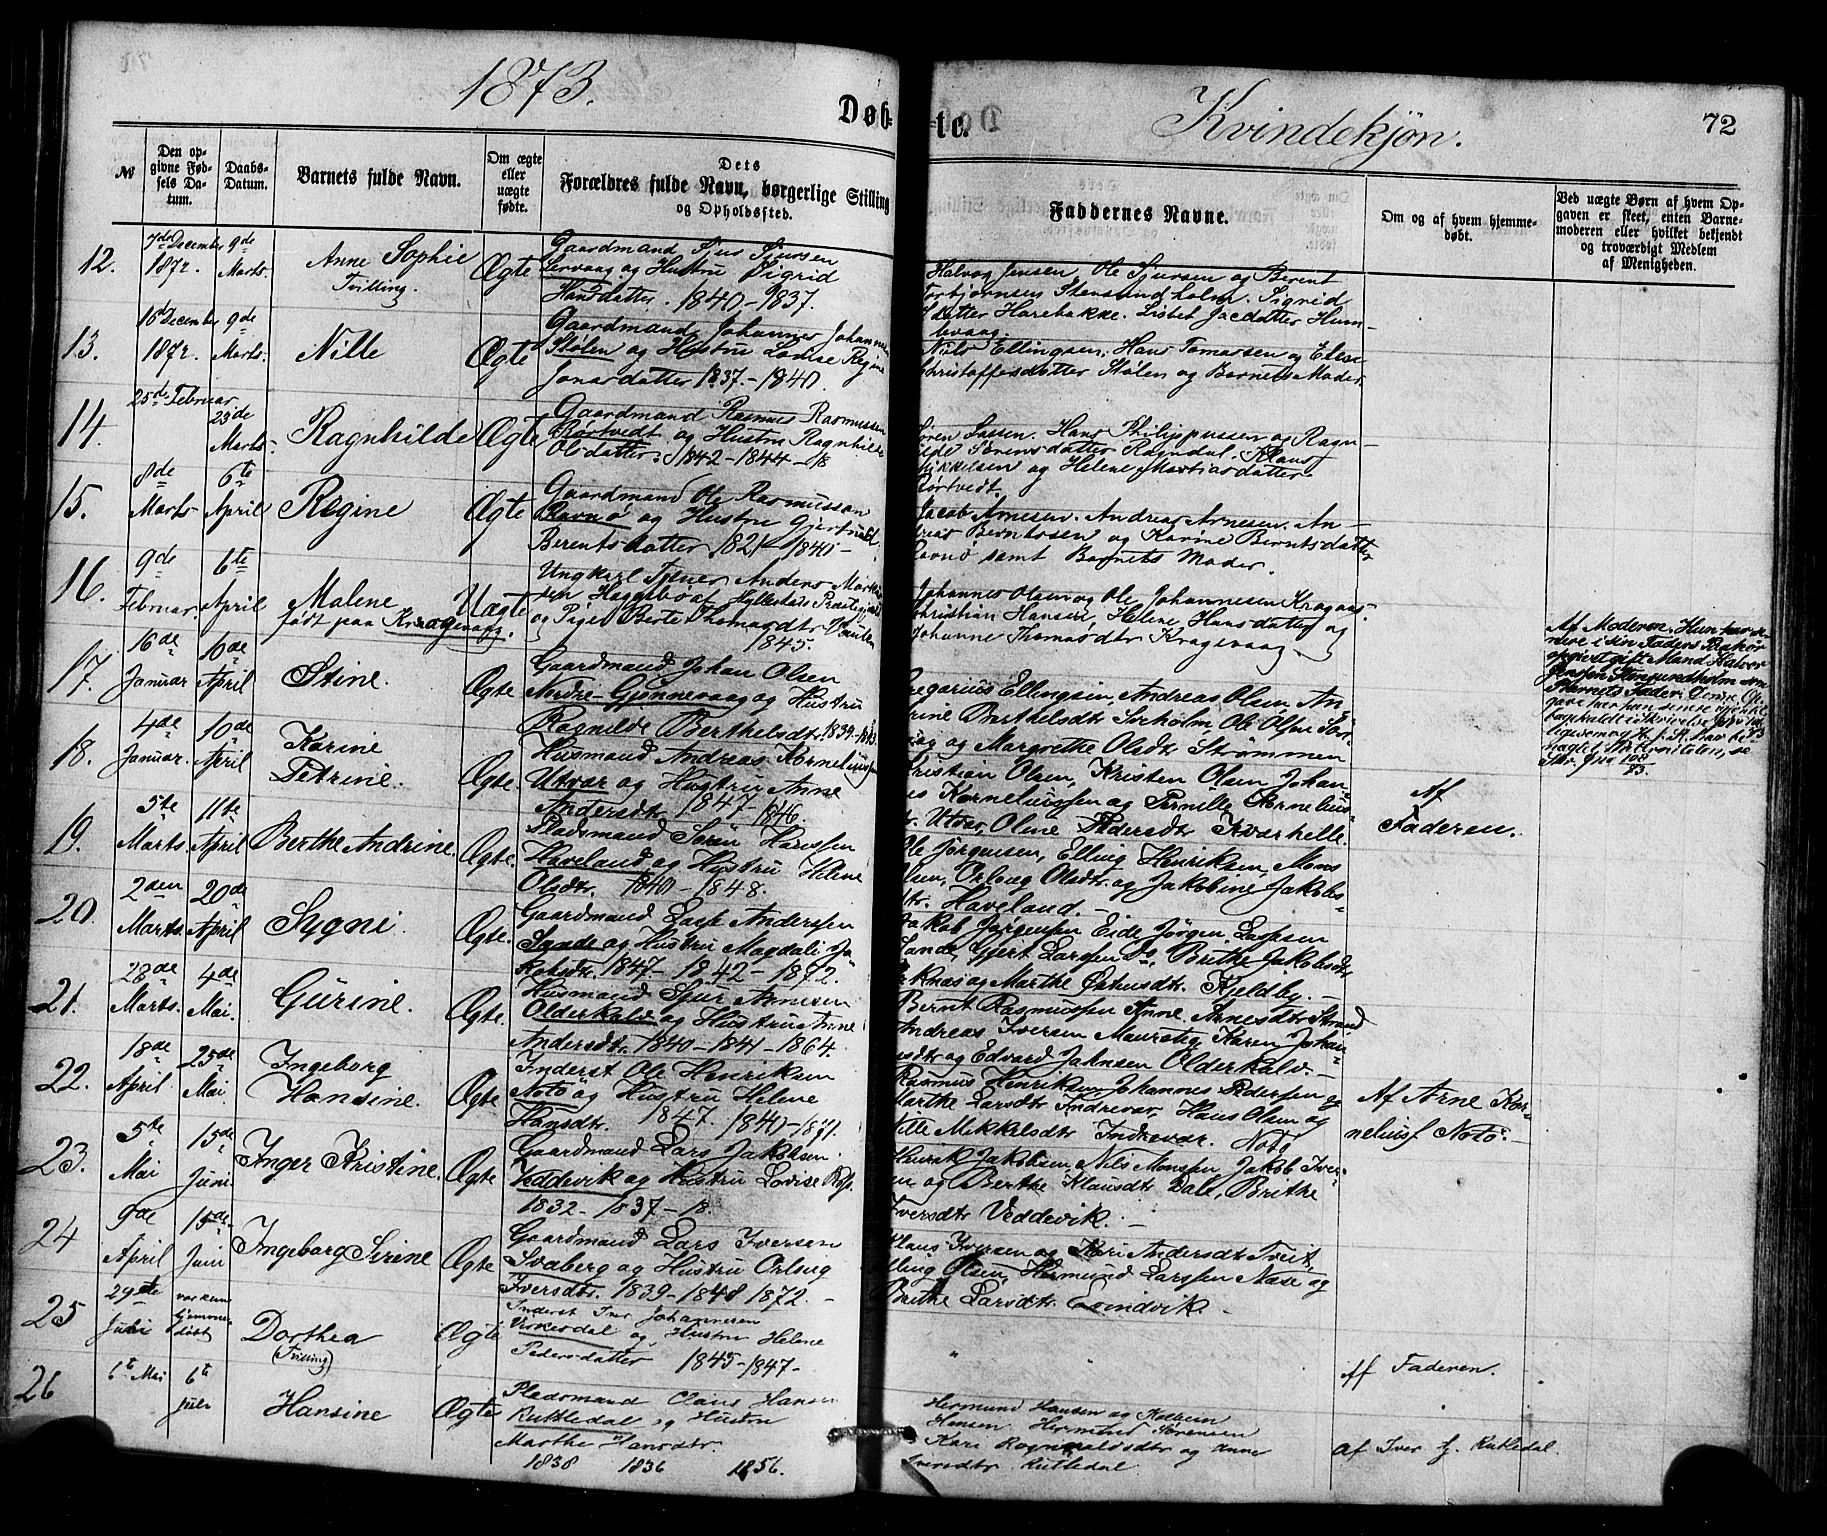 1873.
Døb-
№
Den op-
givne Fød-
sels Da-
tum.
Daabs-
Datum.
Barnets fulde Navn.
Om ægte
eller
uægte
fødte.
Dets
Forældres fulde Navn, borgerlige Stilling
og Opholdssted.
te.
Kvindekjøn.
72
Faddernes Navne.
Om og af hvem hjemme-
døbt.
Ved uægte Børn af hvem Op-
gaven er skeet, enten Barne-
moderen eller hvilket bekjendt
og troværdigt Medlem
af Menigheden.
12.
7de December
1872.
9de
Marts.
Anne Sophie
Tvilling.
Ægte
Gaardmand Sjursen
og Hustru Sigrid
Hansdatter. 1840-1837.
Halvog Jensen, Ole Sjursen og Berent
Torbjørnsen Stensundholm. Sigrid
datter Harebakke. Lisbet Jacdatter Hum-
levaag.
13.
16de December
1872.
9de
Marts.
Nille
Ægte
Gaardmand Johannes Johannesen
Stølen og Hustru Lovise Regine
Jonasdatter 1837.-1840.
Niels Ellingsen, Hans Tomassen og Elen
Christoffersdatter Stølen og Barnets Moder.
14.
25de Februar
23de
Marts.
Ragnhilde
Ægte
Gaardmand Rasmus Rasmussen
Rørtvedt og Hustru Ragnhilde
Olsdatter. 1842-1844-18
Søren Lassen. Hans Philippussen og Ragn-
Sørensdatter Ramdal. Klaus
Mikkelsen og Helene Mattiasdatter
Rørtvedt.
15.
8de
Marts
6te
April
Regine
Ægte
Gaardmand Ole Rasmussen
Ravnø og Hustru Gjertrud
Berentsdatter 1821-1840-
Jacob Arnesen. Andreas Arnesen. An-
dreas Berntssen og Karine Berntsdatter
Ravnø samt Barnets Moder.
16.
9de
Februar
6te
April
Malene
født paa Kragevaag.
Uægte
Ungkarl Tjener Anders Morten-
sen Haggebø af Hyllestad Præstegjeld
og Pige Berte Thomasdtr
1845.
Johannes Olsen og Ole Johannesen Kragaas.
Christian Hansen, Helene Hansdatter og
Johanne Thomasdtr Kragevaag.
Af Moderen. Hun har se-
nere i sin Faders Paahør
opgivet gift Mand Halvor
Jensen Stensundholm som
Barnets Fader.
17.
16de
Januar
10de
April
Stine.
Ægte
Gaardmand Johan Olsen
Nordre-Gjønnevaag og Hustru
Ragnilde Berthelsdtr. 1839-1843.
Gregarius Ellingsen, Andreas Olsen, An-
drine Barthelsdtr Sveholm, Ole Olsen Sør-
og Margrethe Olsdtr Strømmen
18.
4de
Januar.
10de
April
Karine
Petrine.
Ægte.
Husmand Andreas Korneliussen
Utvær og Hustru Anne
Andersdtr. 1847-1846.
Kristian Olsen, Kristen Olsen, Johan-
es Korneliussen og Pernille Kornelius-
dtr. Utvær, Oline Pedersdtr Kværhelle.
Af
Faderen.
19.
5te
Marts.
11te
April
Berthe Andrine.
Ægte.
Pladsmand Søren Hanssen
Haveland og Hustru Helene
Olsdtr. 1840-1848.
Ole Jørgensen, Elling Henriksen, Mons
Olsen, Orlaug Olsdtr. og Jakobine Jakobs-
dtr. Haveland.
20.
2den
Marts.
20de
April
Sygni.
Ægte.
Gaardmand Lasse Anderssen
Sande og Hustru Magdali Ja-
kobsdtr. 1847-1842-1872.
Jakob Jørgensen Eide, Jørgen Lassesen
Sande, Gjert Larsen Do, Brithe Jakobsdtr
og Marthe Østensdtr. Kjeldby.
21.
28de
Marts.
4de
Mai.
Gurine.
Ægte.
Husmand Sjur Arnesen
Olderkalv og Hustru Anne
Andersdtr. 1840-1841-1864.
Bernt Rasmussen, Anne Arnesdtr Strand
Andreas Iversen Maurstig, Karen Johan-
nesdtr og Edvard Johnsen Olderkalv.
22.
18de
April
25de
Mai
Ingeborg
Hansine.
Ægte
Inderst Ole Henriksen
Notø og Hustru Helene
Hansdtr. 1847. 1840-1871.
Rasmus Henriksen, Johannes Pedersen og
Marthe Larsdtr Indrevær, Hans Olsen og
Nille Mikkelsdtr Indrevær. Notø
Af Arne Kor-
neliuss. Notø.
23.
5te
Mai
15de
Juni
Inger Kristine.
Ægte
Gaardmand Lars Jakobsen
Veddevik og Hustru Lovise
1832-1837-18.
Henrik Jakobsen, Nils Monsen, Jakob Iver-
sen og Berthe Klausdtr Dale, Brithe
Iversdtr Veddevik.
24
9de
April
15de
Juni
Ingeborg Serine
Ægte
Gaardmand Lars Iversen
Svaberg og Hustru Orlaug
Iversdtr. 1839-1848 1872.
Klaus Iversen og Kari Andersdtr Tveit,
Elling Olsen, Hermund Larssen Næse og
Brithe Larsdtr. Evindvik.
25
29de
Juli
var kun
hjemme-
døbt
Dorthea
(Tvilling)
Ægte
Inderst Iver Johannesen
Virkesdal og Hustru Helene
Pedersdatter 1845-1847-
"
Af Faderen.
26
6te Mai
6te
Juli
Hansine
Ægte
Pladsmand Claus Hansen
Rutledal og Hustru
Marthe Hansdtr.
1838 1836 1856.
Hermund Hansen og Kolbein
Hansen Hermund Sørensen
Kari Rognvaldsdtr og Anne
Iversdtr Rutledal
Af Iver H. Rutledal.